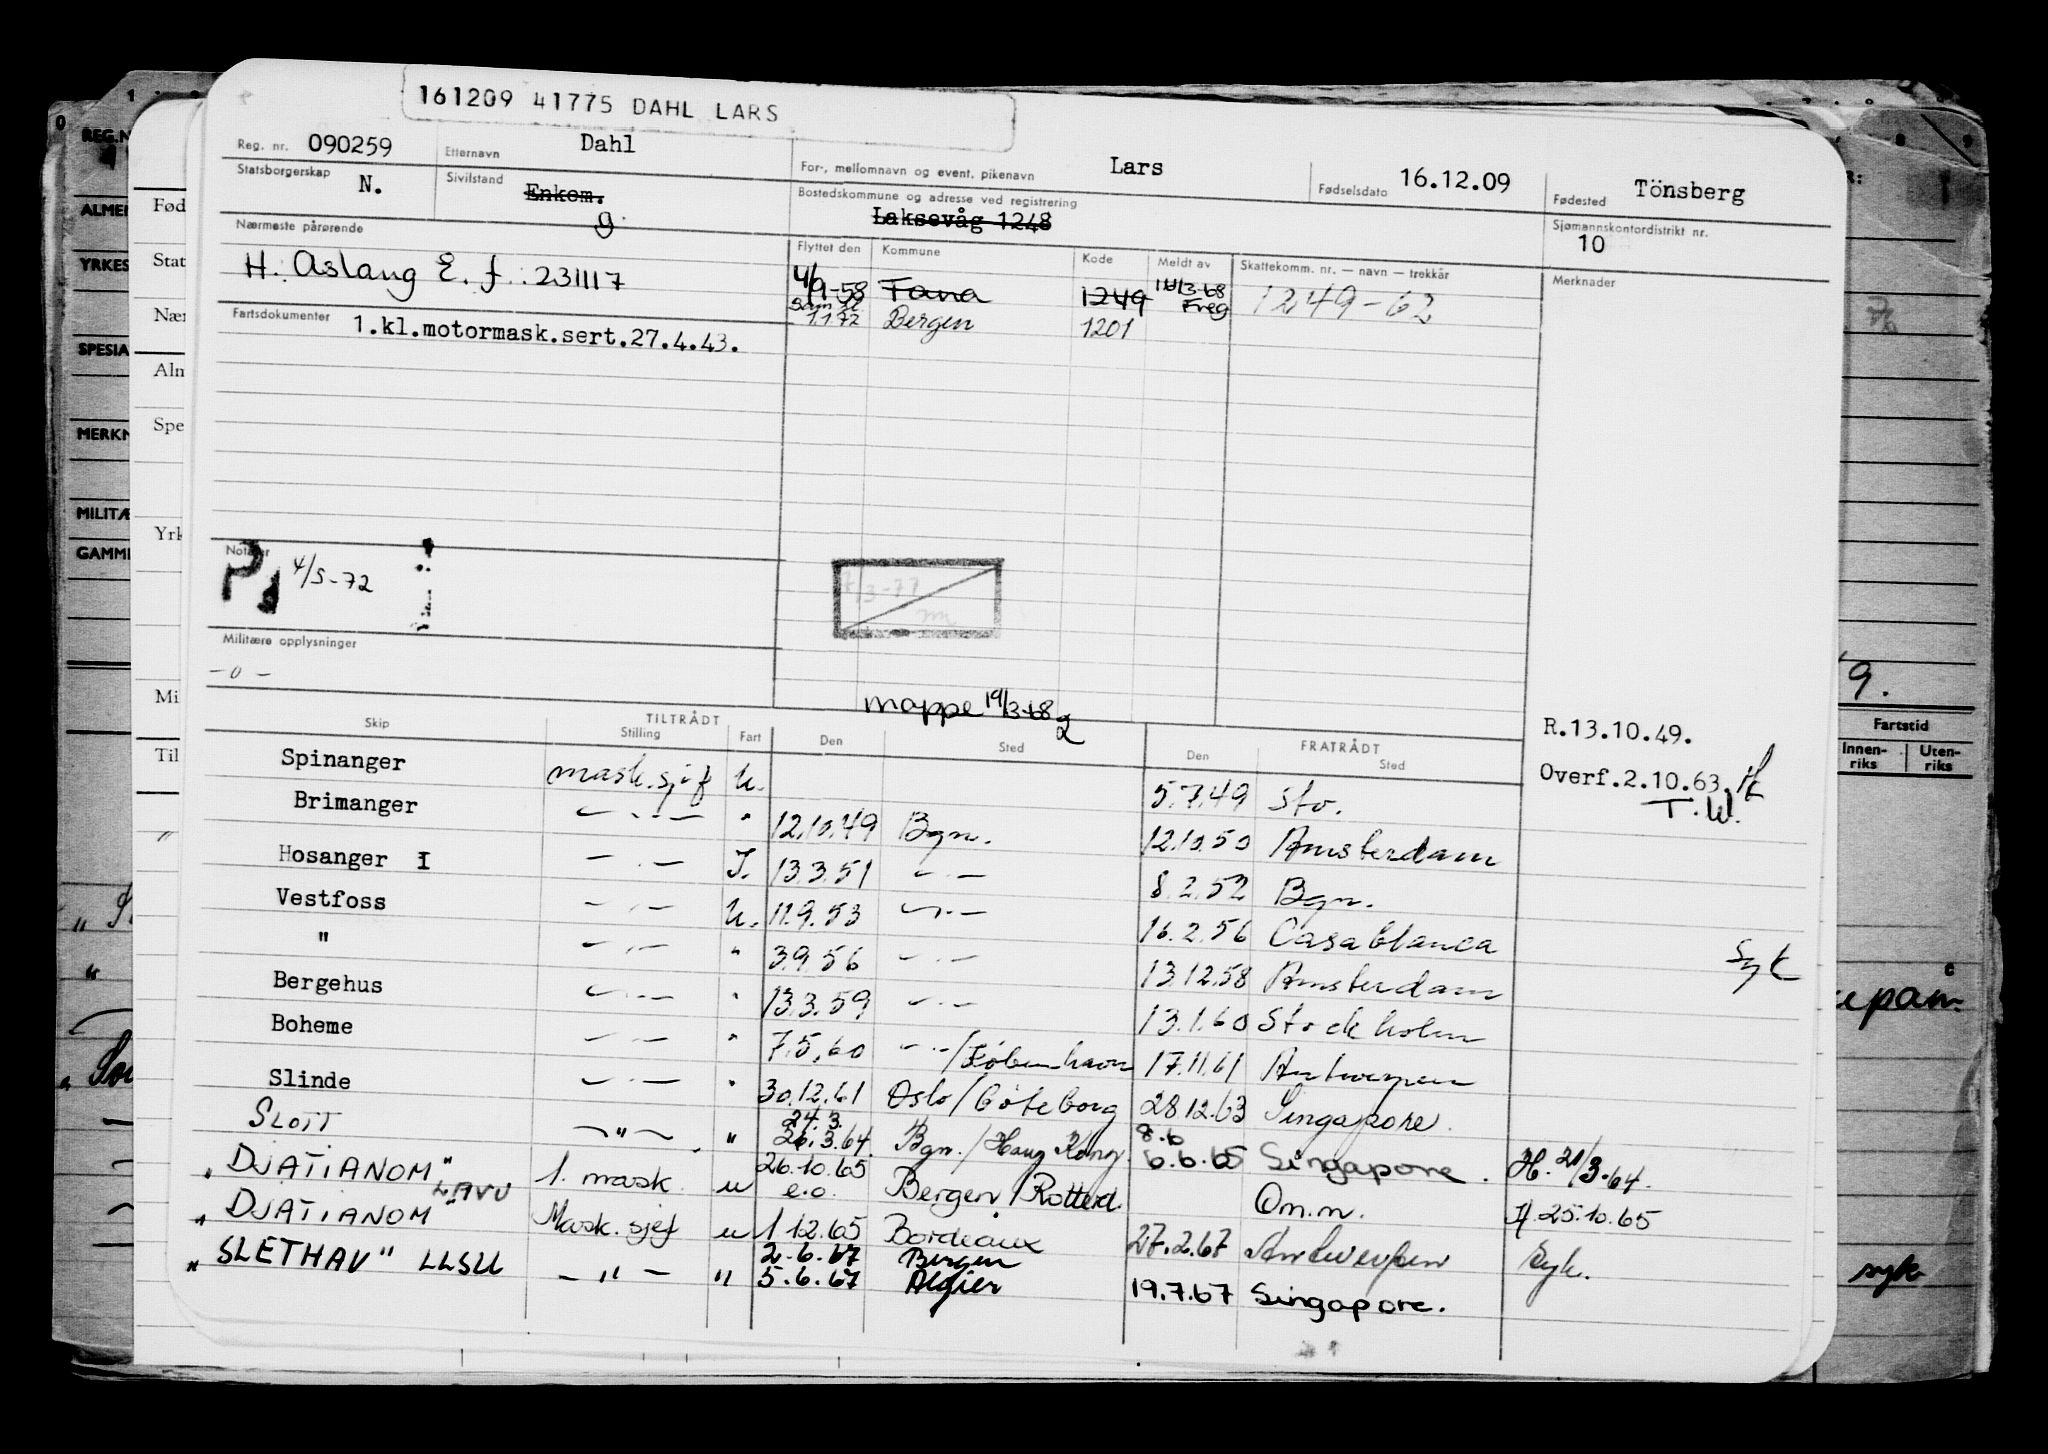 161209 41775 DAHL LARS
Reg. nr. 090259 Etternavn Dahl For-, mellomnavn og event. pikenavn Lars Fødselsdato 16.12.09 Fødested Tönsberg
Statsborgerskap N. Sivilstand Enkem. g Bostedskommune og adresse ved registrering Laksevåg 1248 Sjømannskontordistrikt nr. 10
Nærmeste pårørende Flyttet den Kommune Kode Meldt av Skattekomm. nr. — navn — trekkår Merknader
H. Aslaug E. f. 231117 4/9-58 Fana 1249 14/3-68 Freg 1249-62
Fartsdokumenter 1.kl.motormask.sert.27.4.43. 1.1.72 Bergen 1201
Notater 4/5-72
7/3-77
Militære opplysninger
-0-
Mappe 19/3-68
Skip TILTRÅDT Stilling Fart Den Sted FRATRÅDT Den Sted
R.13.10.49.
Overf.2.10.63.
T.W.
Spinanger mask.sjef U. 5.7.49 Sto.
Brimanger — " — " 12.10.49 Bgn. 12.10.50 Amsterdam
Hosanger I — " — I. 13.3.51 — " — 8.2.52 Bgn.
Vestfoss — " — U. 11.9.53 — " — 16.2.56 Casablanca syk
" — " — " 3.9.56 — " — 13.12.58 Amsterdam
Bergehus — " — " 13.3.59 — " — 13.1.60 Stockholm
Boheme — " — " 7.5.60 — " —/København 17.11.61 Antwerpen
Slinde — " — " 30.12.61 Oslo/Göteborg 28.12.63 Singapore.
SLOTT — " — " 24.3. 26.3.64. Bgn./Hong Kong. 8.6 6.6.65 Singapore. H. 21/3-64.
"DJATIANOM" LAVU 1. mask. u 26.10.65 e.o. Bergen/Rotterd. Om.m. H. 25.10.65
"DJATIANOM" Mask.sjef u 1.12.65 Bordeaux 27.2.67 Antwerpen Syk.
"SLETHAV" LLSU — " — " 2.6.67 Bergen
5.6.67 Algier 19.7.67 Singapore.
REG.N
ALMEN
YRKES
SPESIA
MERKN
MILITÆ
GAMME
Fød
Stat
Nær
Alm
Spe
Yrk
Mi
Til
9.
Fartstid
Innen-riks Uten-riks
syk